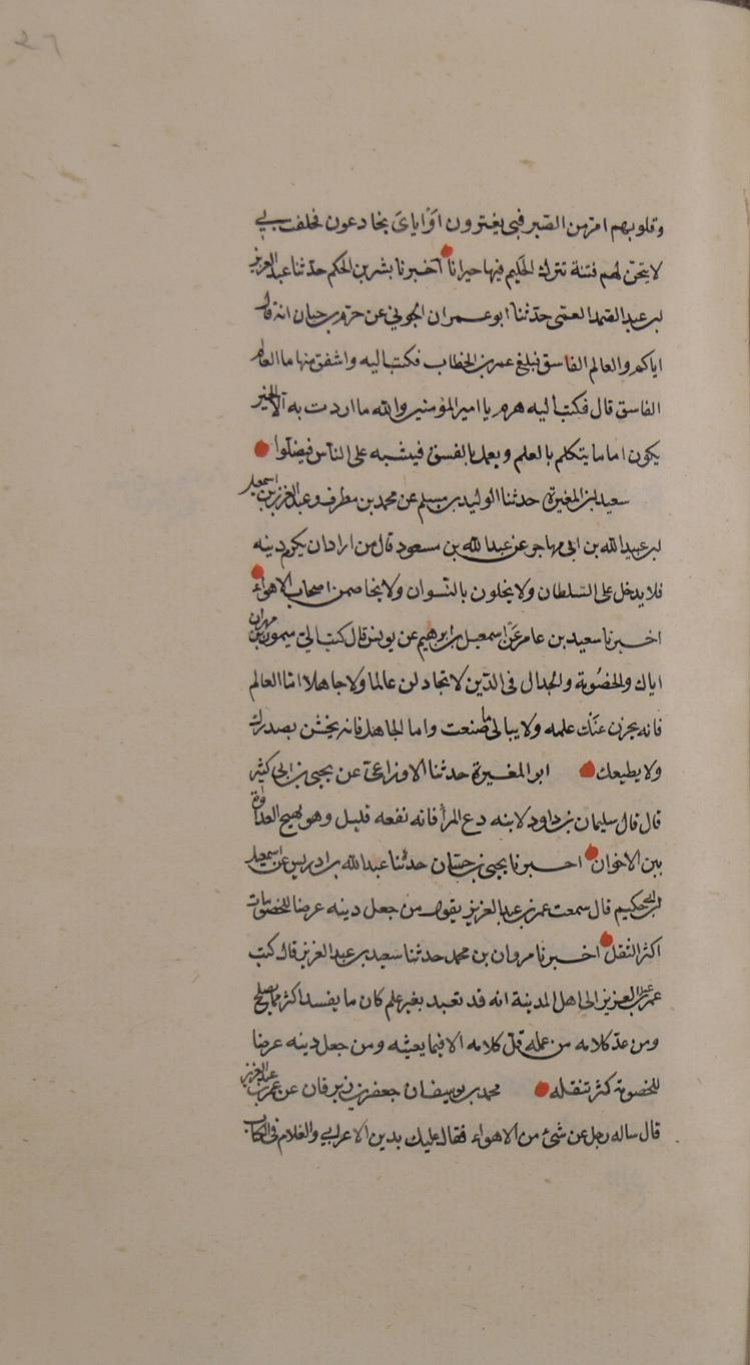 ٤٦
وقلوبهم امرّ من الصبر فبي يغترون او اياي يخادعون فحلفت بي
لاتيحنّ لهم فتنة تترك الحكيم فيها حيرانا اخبرنا بشر بن الحكم حدثنا عبد العزيز
بن عبد الصمد العمّي حدّثنا ابو عمران الجوني عن هرم بن حيان انه قال
اياكم والعالم الفاسق فبلغ عمر بن الخطاب فكتب اليه واشفق منها ما العالم
الفاسق قال فكتب اليه هرم يا امير المؤمنين والله ما اردت به الّا الخير
يكون امام يتكلم بالعلم ويعمل بالفسق فيشبه على الناس فيضلّوا
سعيد بن المغيرة حدثنا الوليد بن مسلم عن محمد بن مطرف وعبد العزيز بن اسمعيل
بن عبيد الله بن ابي مهاجر عن عبد الله بن مسعود قال من اراد ان يكرم دينه
فلا يدخل على السلطان ولا يخلون بالنسوان ولا يخاصمن اصحاب الاهواء
اخبرنا سعيد بن عامر عن اسمعيل بن ابرهيم عن يونس قال كتب اليّ ميمون بن مهران
اياك والخصومة والجدال في الدّين لا تجادلن عالما ولا جاهلا امّا العالم
فانه يخزن عنك علمه ولا يبالي ما صنعت واما الجاهل فانه يخشن بصدرك
ولا يطيعك ابو المغيرة حدثنا الاوزاعي عن يحيى بن ابي كثير
قال قال سليمان بن داود لابنه دع المرأ فانه نفعه قليل وهو يهيج العداوة
بين الاخوان اخبرنا يحيى بن حسان حدثنا عبد الله بن ادريس عن اسمعيل
بن ابي حكيم قال سمعت عمر بن عبد العزيز يقول من جعل دينه عرضا للخصومات
اكثر التنقل اخبرنا مروان بن محمد حدثنا سعيد بن عبد العزيز قال كتب
عمر بن عبد العزيز الى اهل المدينة انه قد تعبد بغير علم كان ما يفسد اكثر مما يصلح
ومن عدّ كلامه من عمله قلّ كلامه الا فيما يعنيه ومن جعل دينه عرضا
للخصومة كثر تنقله محمد بن يوسف ان جعفر بن برقان عن عمر بن عبد العزيز
قال ساله رجل عن شئ من الاهواء فقال عليك بدين الاعرابي والغلام في الكتاب